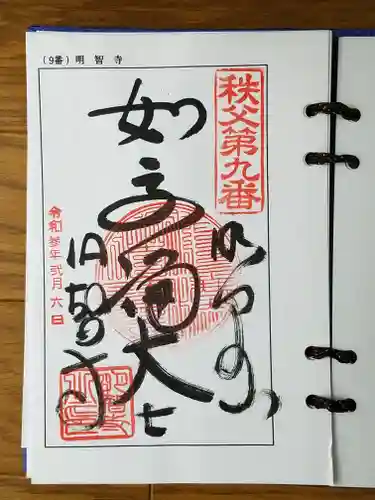 (9番) 明智寺
秩父第九番
明星山
如意輪大士
明智寺
令和参年弐月六日